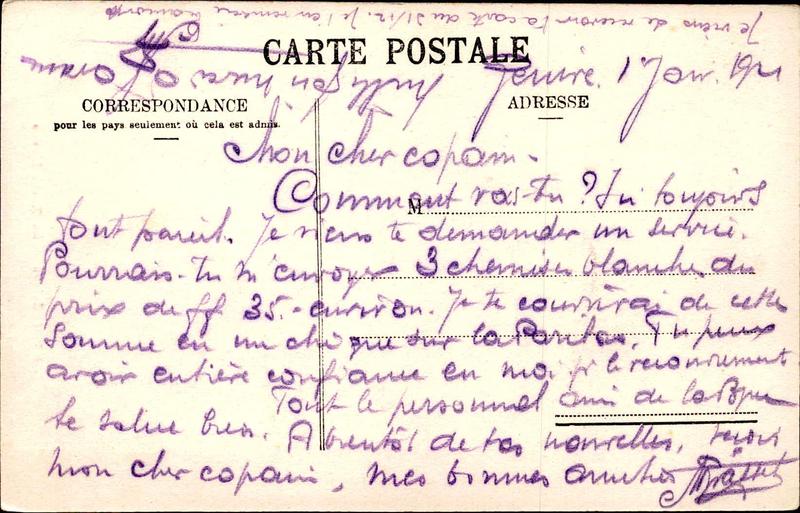 Je viens de recevoir ta carte du 31/12. Je t'en remercie
CARTE POSTALE
Genève. 1 Janv. 1921
CORRESPONDANCE
ADRESSE
pour les pays seulement où cela est admis.
Mon cher copain.
Comment vas-tu ? toujours
M
tout pareil. Je viens te demander un service.
Pourrais-tu m'envoyer 3 chemises blanches du
prix de ff 35.- environ. Je te couvrirai de cette
somme en un chèque sur la Paribas. Tu peux
avoir entière confiance en moi le remboursement
Tout le personnel ami de la Bque
te salue bien. A bientôt de tes nouvelles, reçois
mon cher copain, mes bonnes amitiés